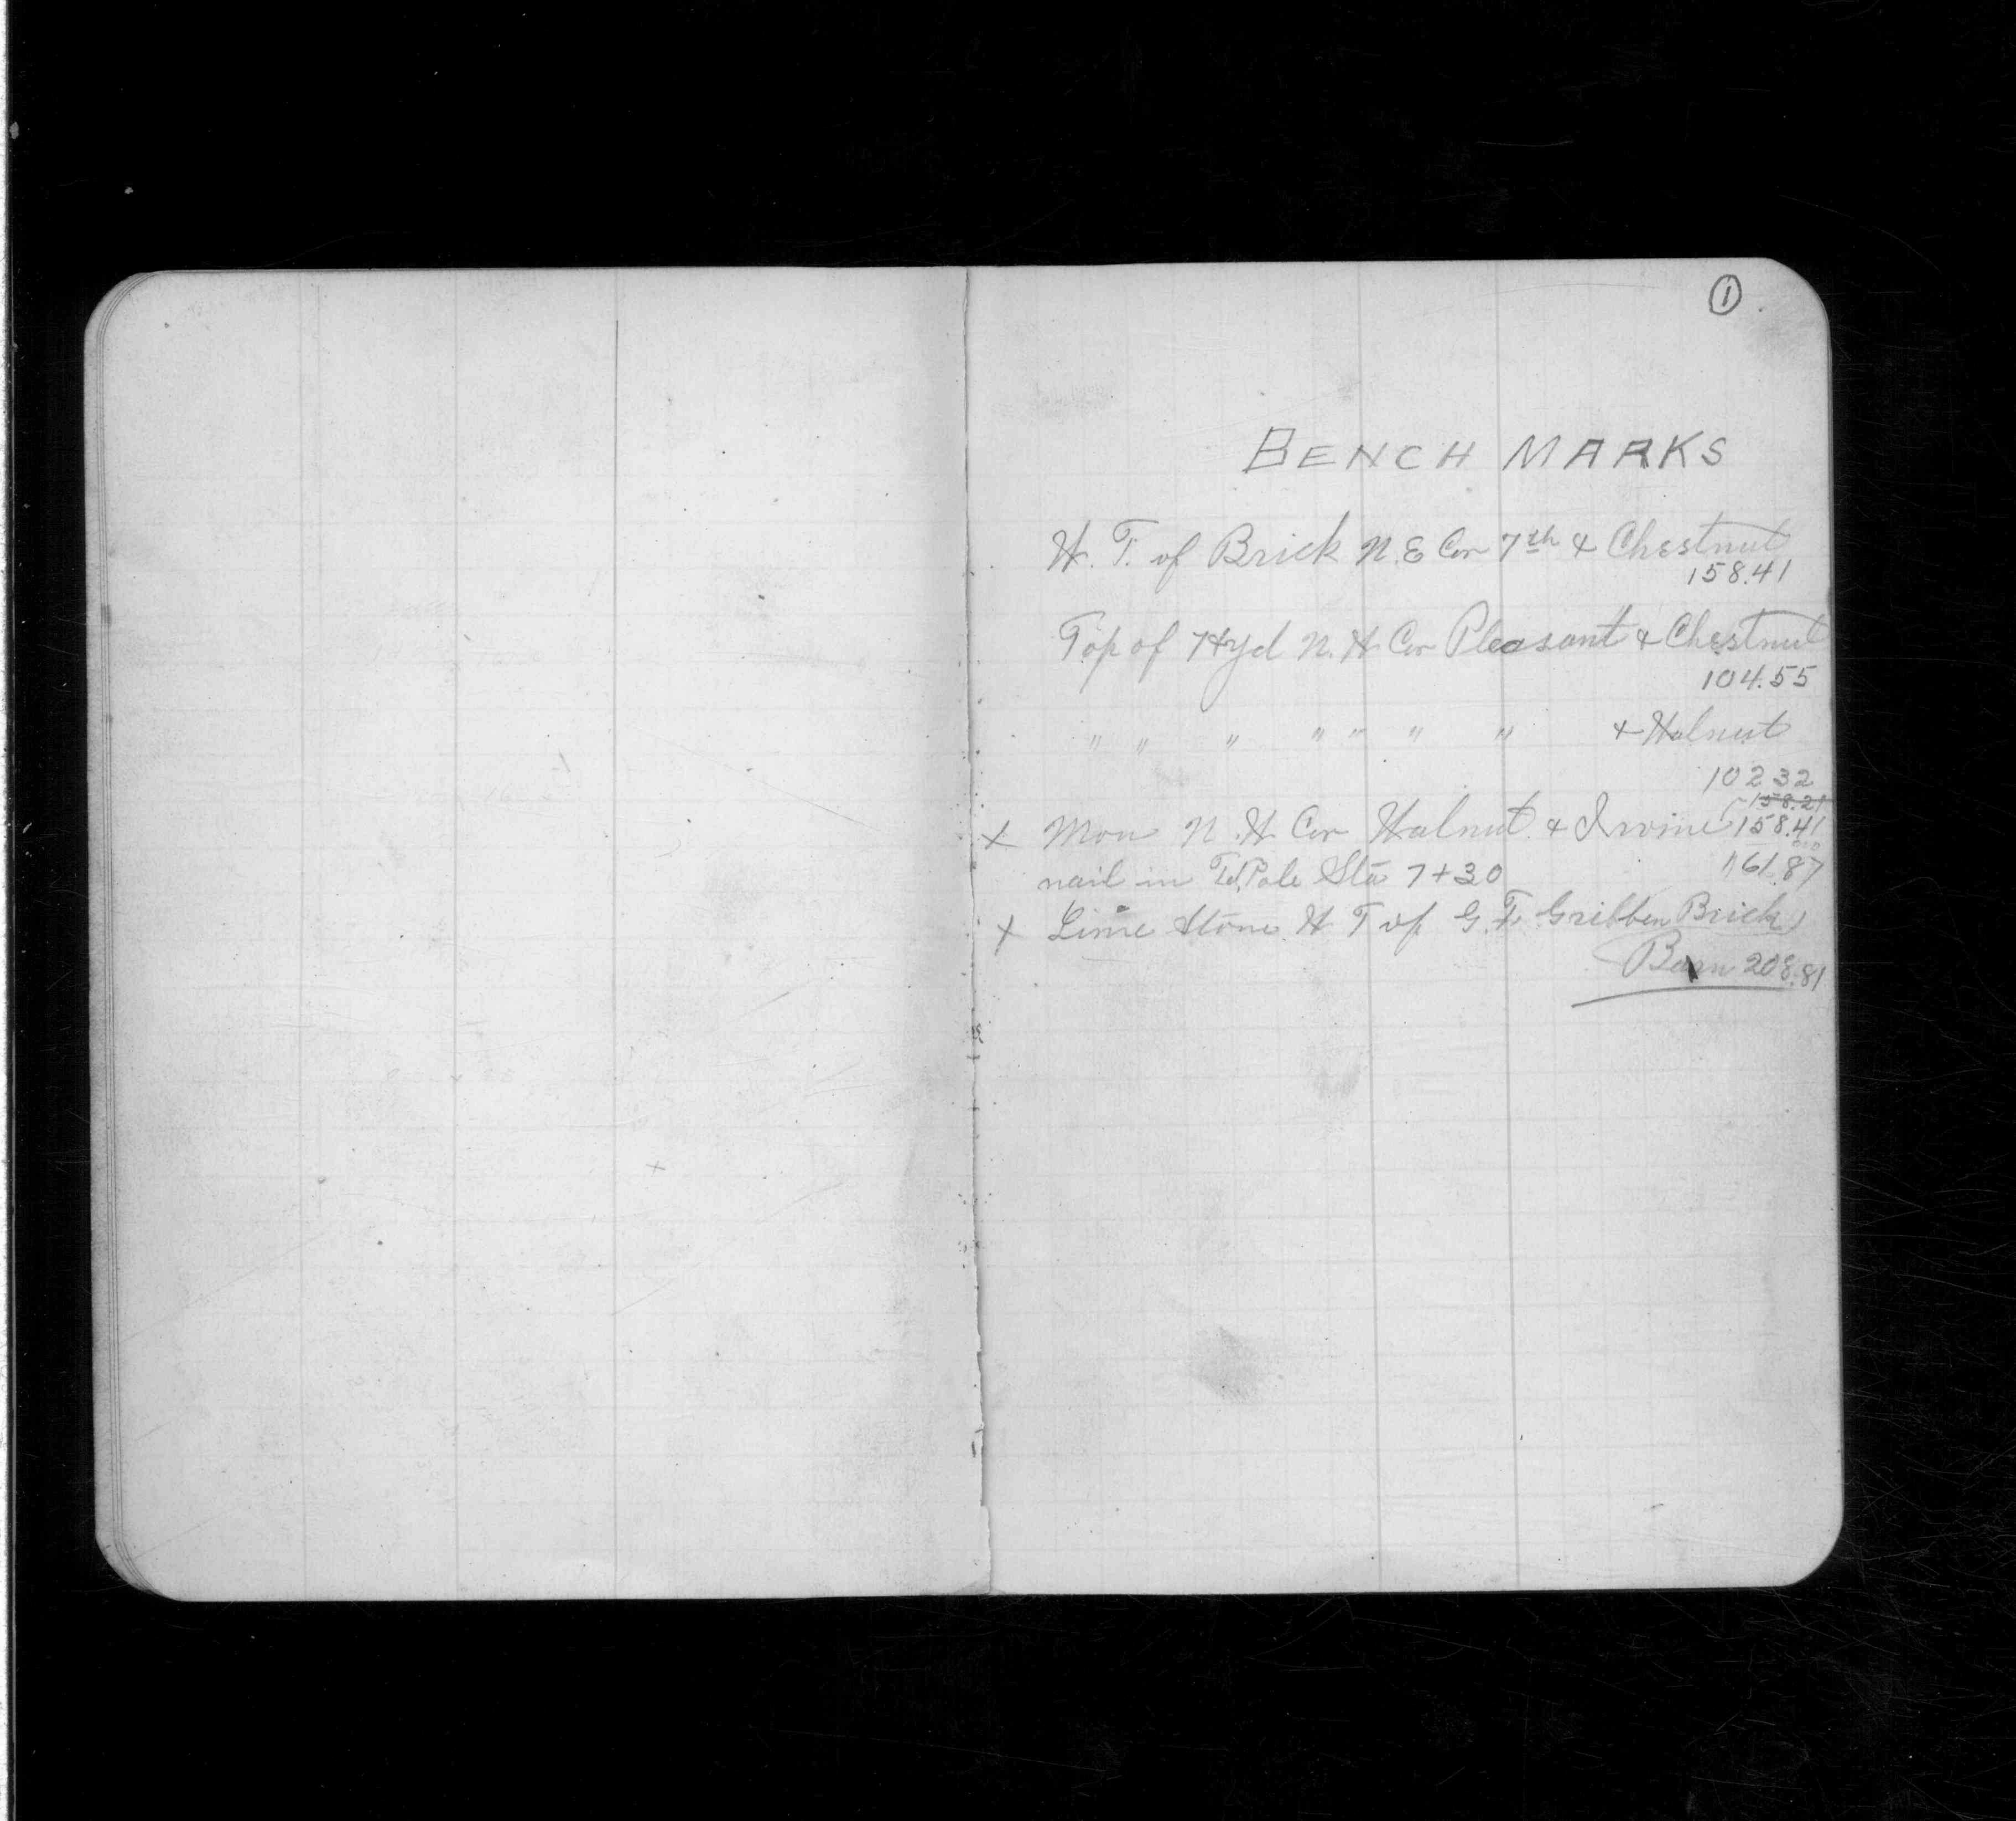 1
BENCH MARKS
W. T. of Brick N. E Cor 7th & Chestnut
158.41
Top of Hyd N. W. Cor Pleasant & Chestnut
104.55
" " " " " " " & Walnut
102 32
158.21
x Mon N. W. Cor Walnut & Irvine 158.41
nail in Tel. Pole Sta 7+30 161.87
x Lime Stone W T of G. F. Gribben Brick
Barn 208.81